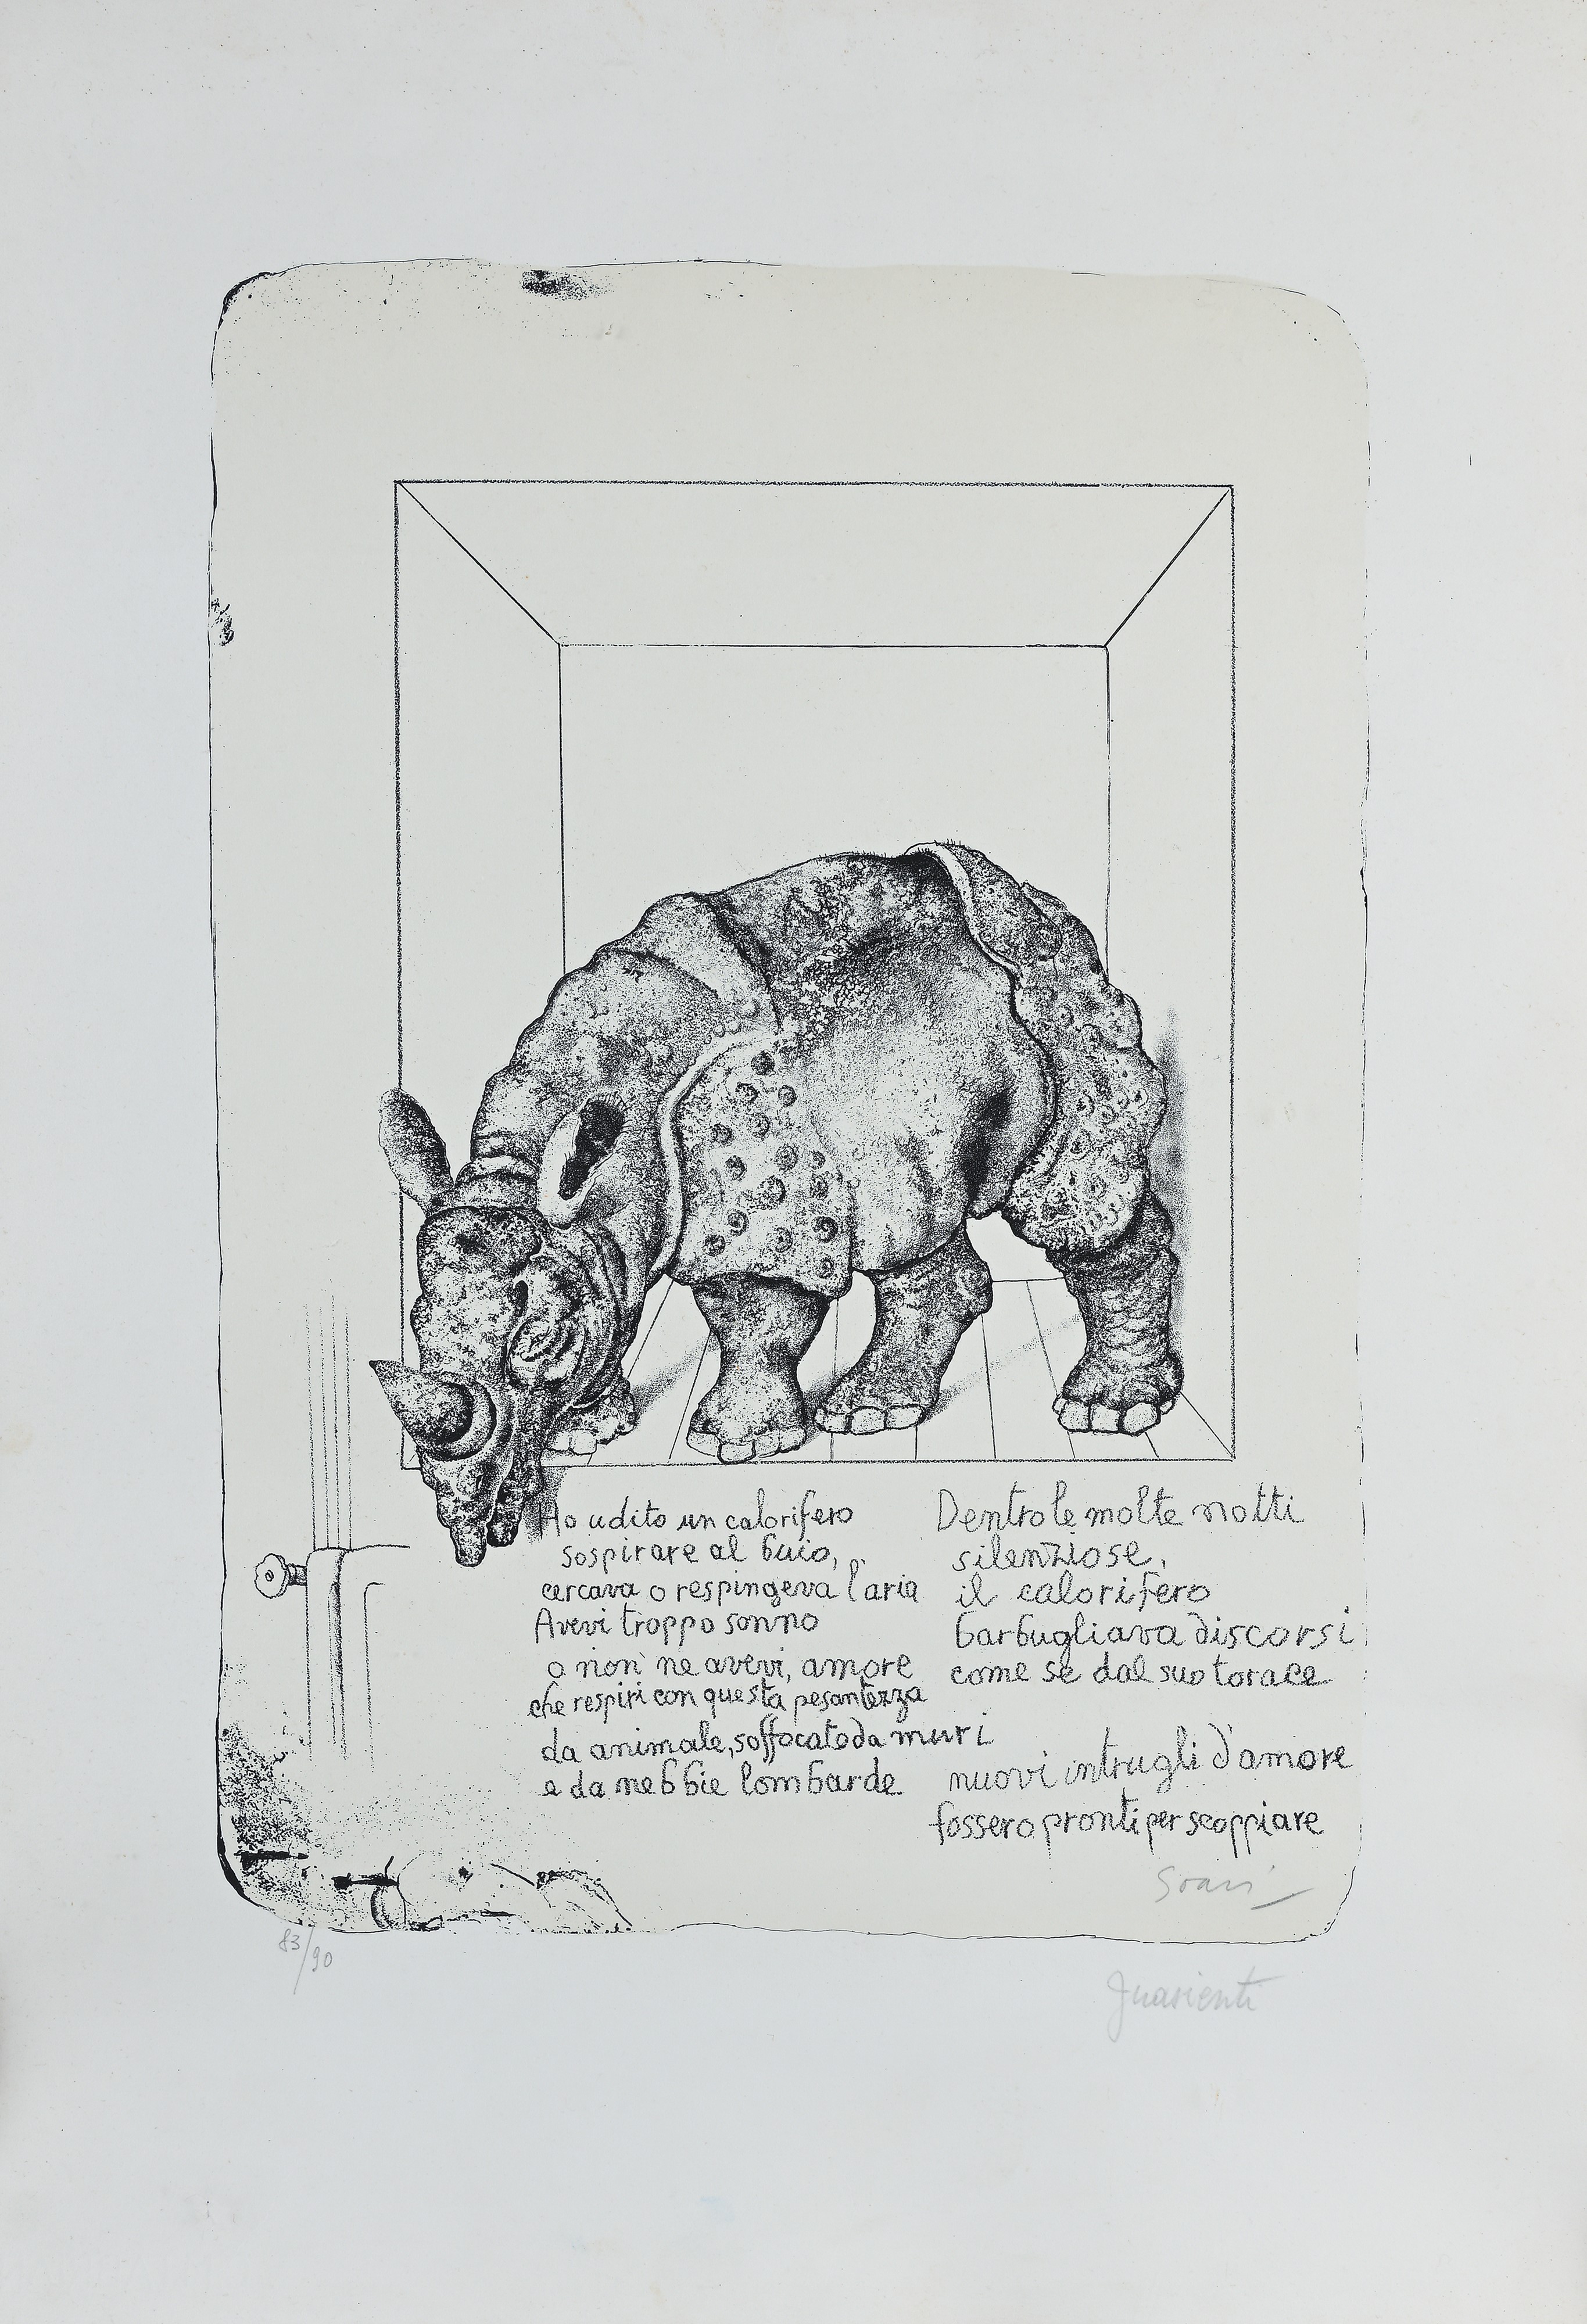 Ho udito un calorifero
sospirare al buio,
cercava o respingeva l'aria
Avevi troppo sonno
o non ne avevi, amore
che respiri con questa pesantezza
da animale, soffocato da muri
e da nebbie lombarde
Dentro le molte notti
silenziose,
il calorifero
barbugliava discorsi
come se dal suo torace
nuovi intrugli d'amore
fossero pronti per scoppiare
83/90